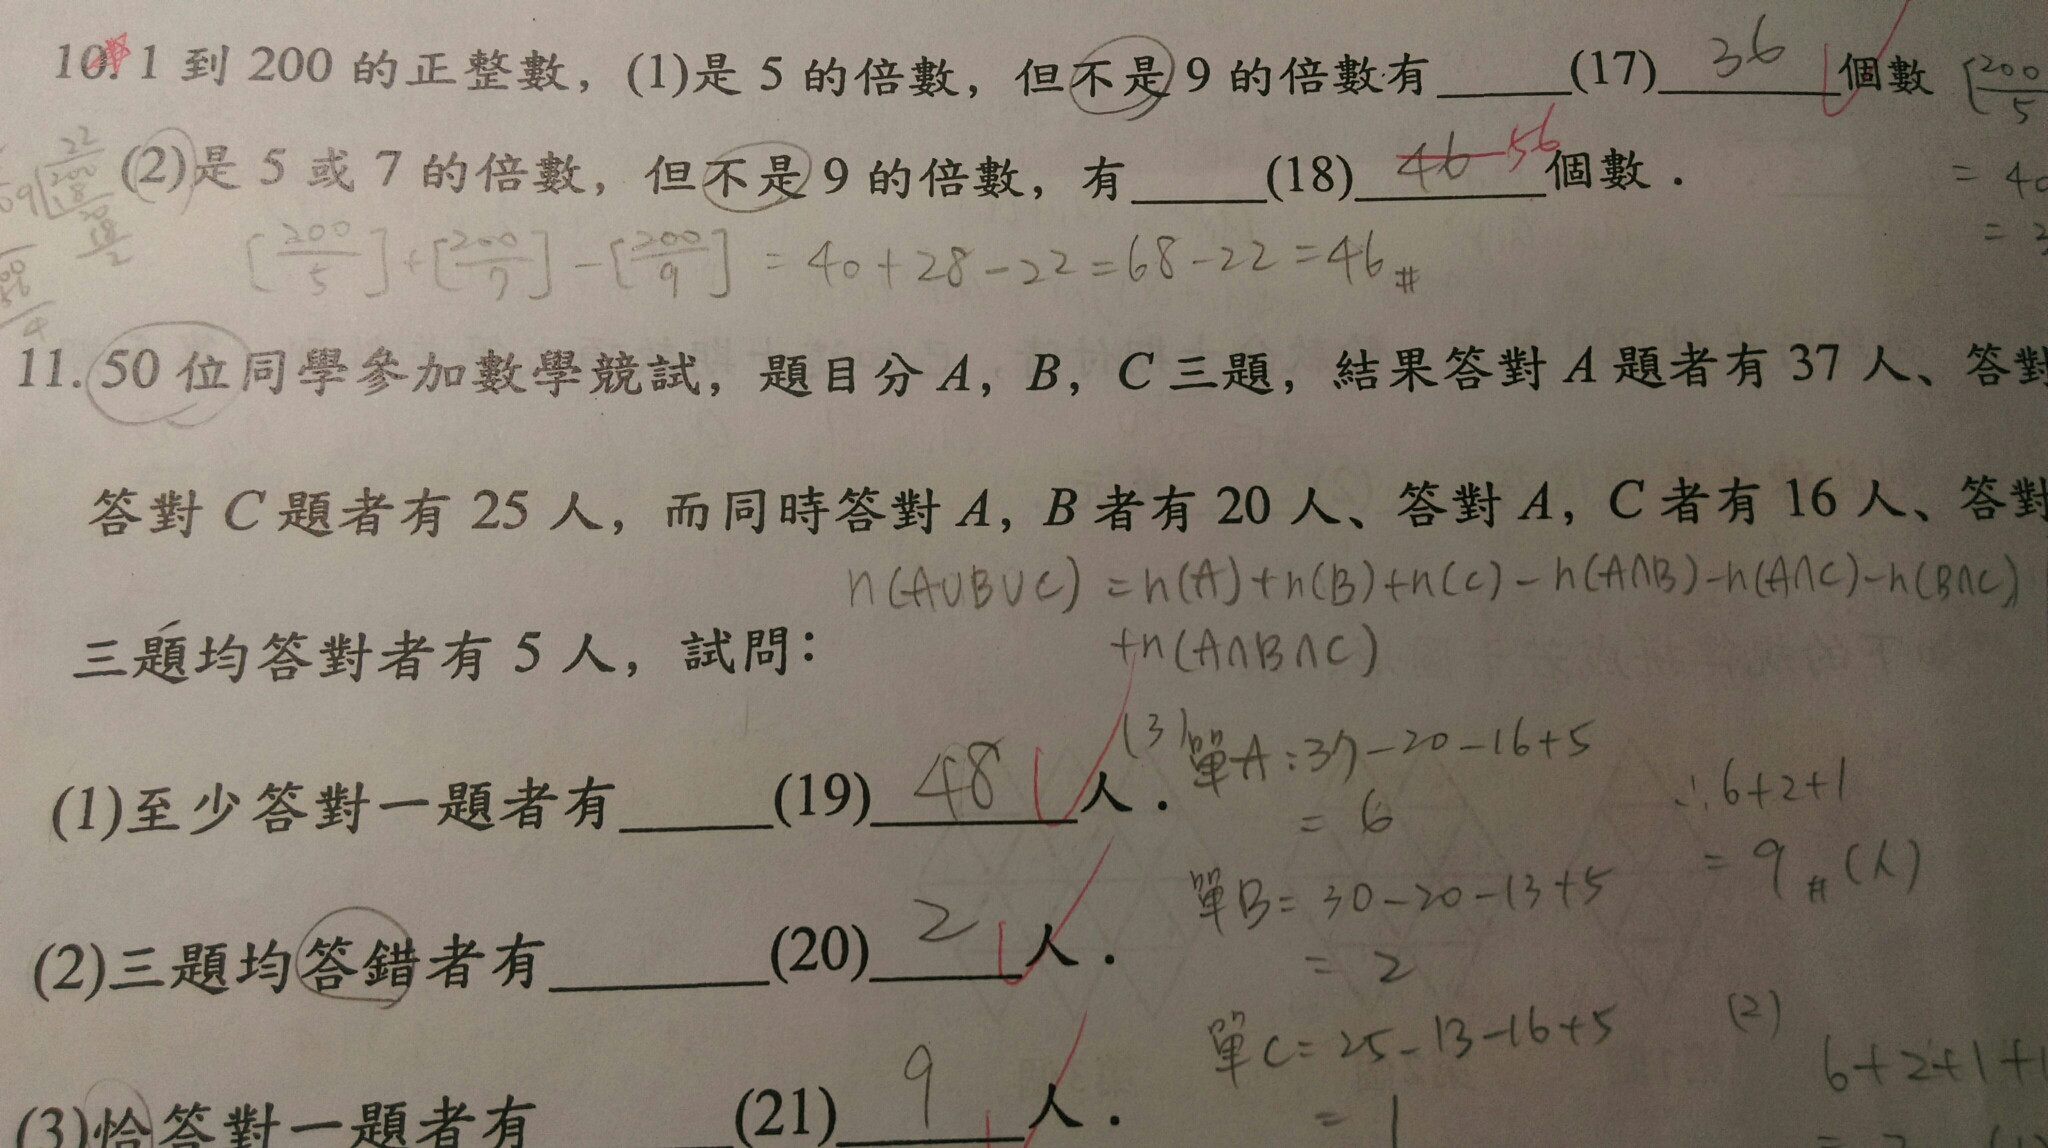 10. 1 到 200 的正整數，(1)是 5 的倍數，但不是 9 的倍數有_____(17) 36 個數 [200/5
(2)是 5 或 7 的倍數，但不是 9 的倍數，有_____(18) 46 56 個數．
= 40
[200/5]+[200/7]-[200/9] = 40+28-22=68-22=46#
11. 50 位同學參加數學競試，題目分 A，B，C 三題，結果答對 A 題者有 37 人、答對
答對 C 題者有 25 人，而同時答對 A，B 者有 20 人、答對 A，C 者有 16 人、答對
n(A∪B∪C) = n(A)+n(B)+n(C)-n(A∩B)-n(A∩C)-n(B∩C)
+n(A∩B∩C)
三題均答對者有 5 人，試問：
(1)至少答對一題者有_____(19) 48 人．
(2)三題均答錯者有_____(20) 2 人．
(3)恰答對一題者有_____(21) 9 人．
(3)單A:37-20-16+5
= 6
單B= 30-20-13+5
= 2
單C= 25-13-16+5
= 1
∴6+2+1
= 9#(人)
(2)
6+2+1+